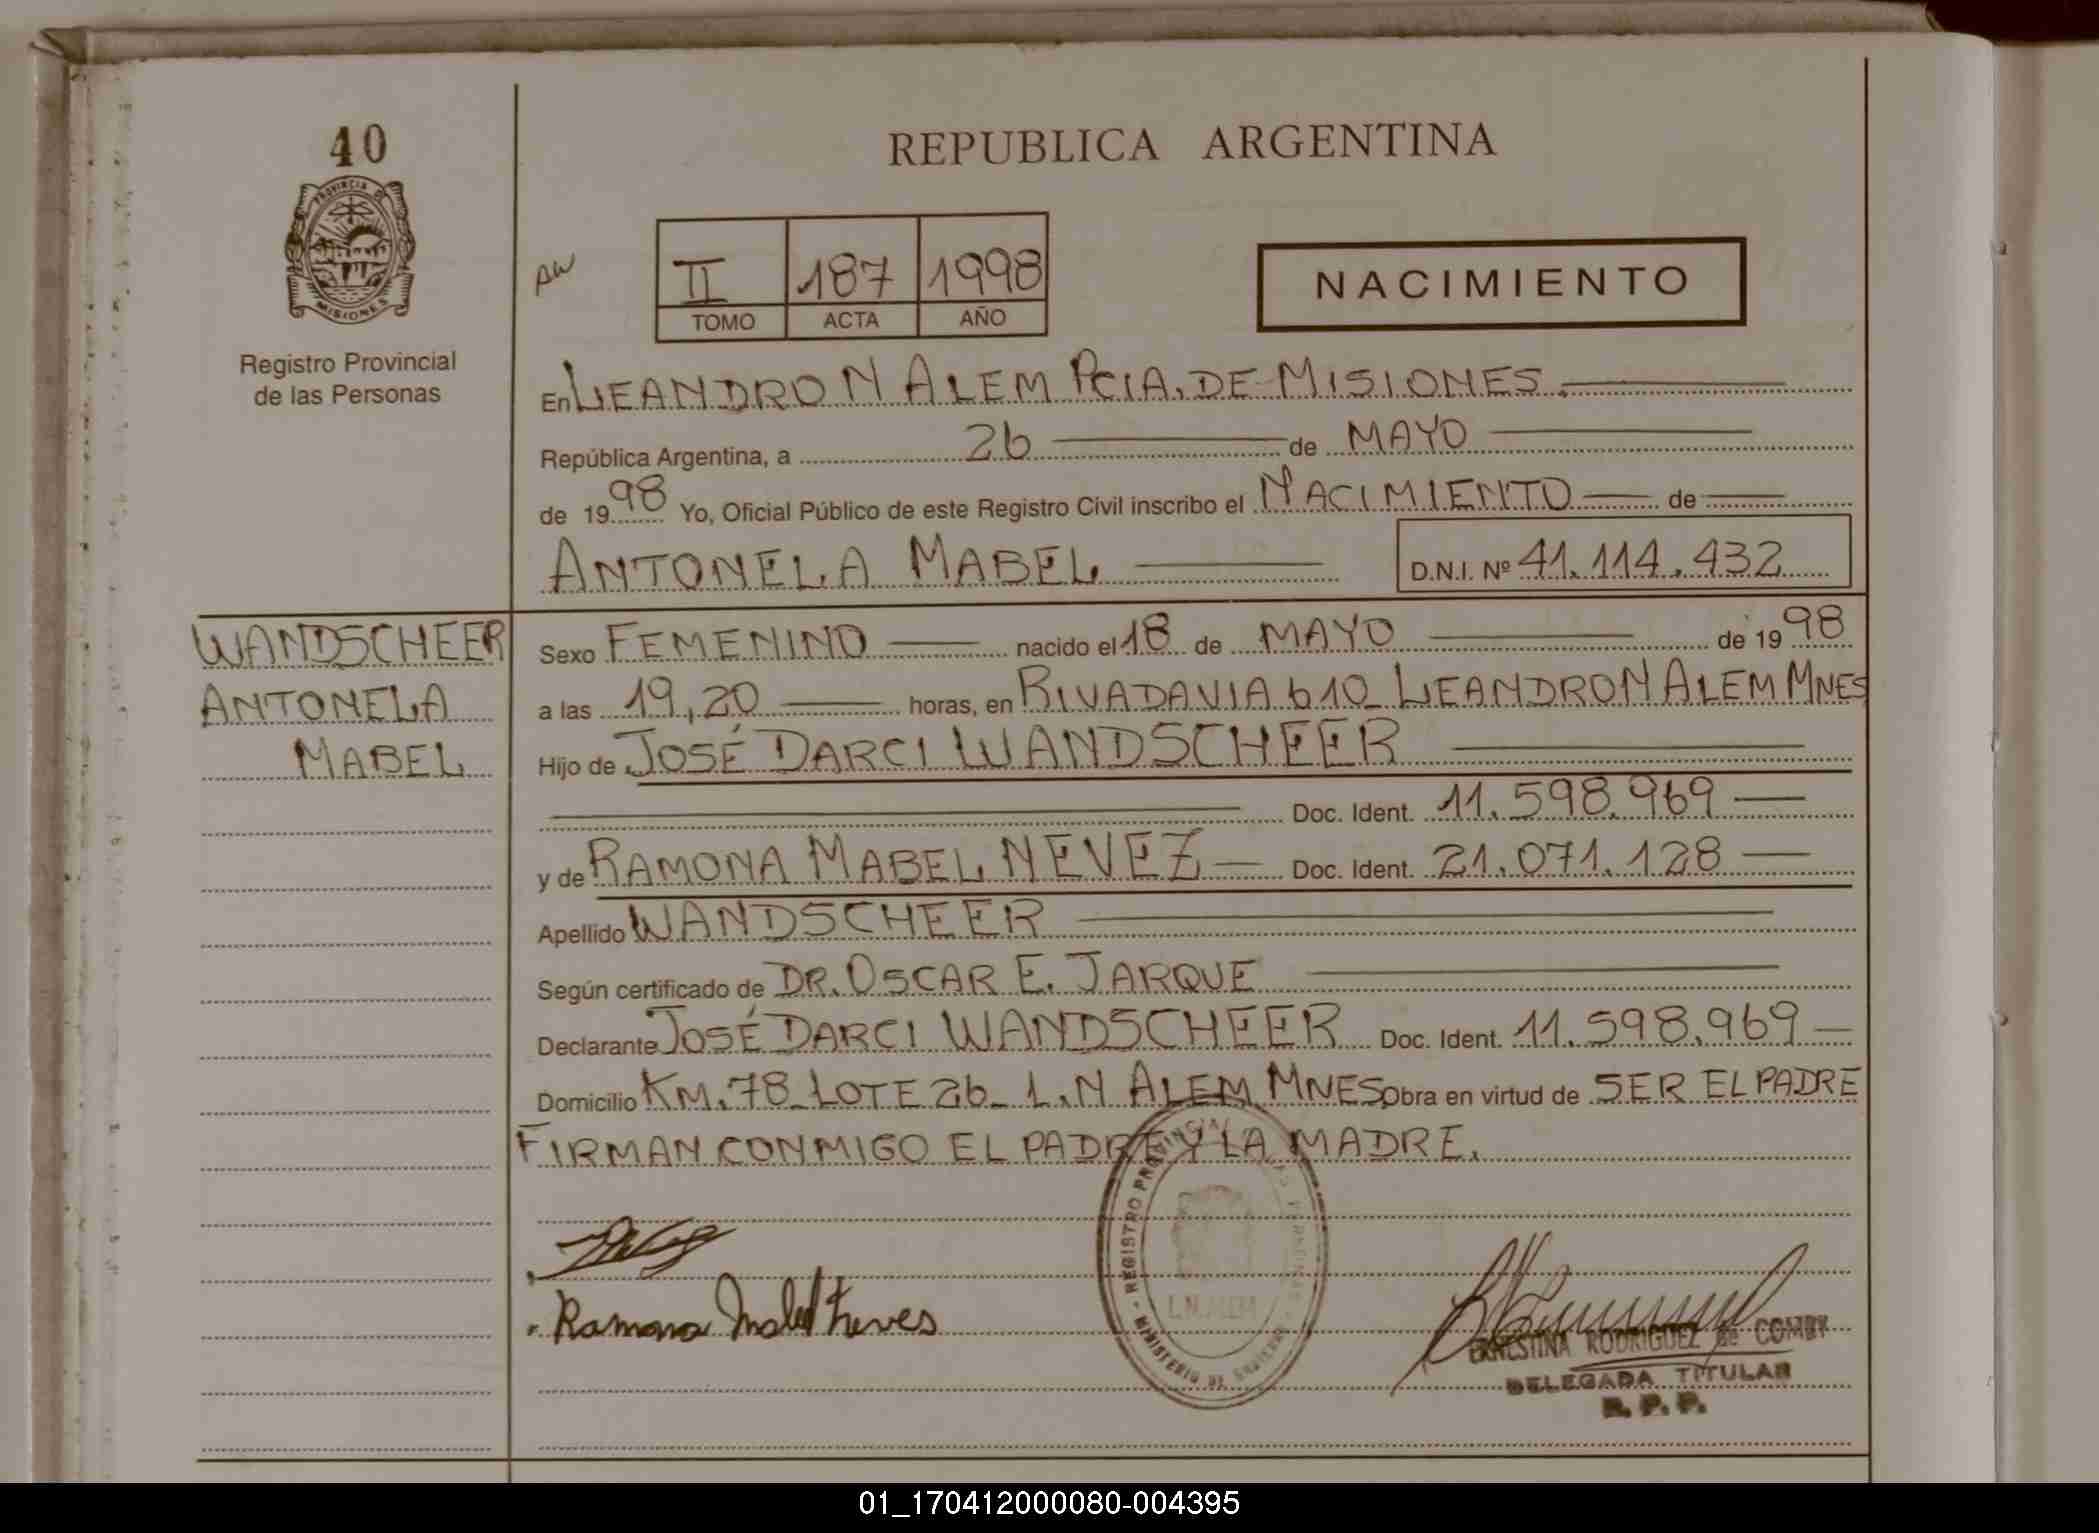 40
REPUBLICA ARGENTINA
PROVINCIA DE
MISIONES
Registro Provincial
de las Personas
II 187 1998
TOMO ACTA AÑO
NACIMIENTO
En LEANDRO N ALEM PCIA. DE MISIONES.
República Argentina, a 26 de MAYO
de 1998 Yo, Oficial Público de este Registro Civil inscribo el NACIMIENTO de
ANTONELA MABEL D.N.I. Nº 41.114.432
WANDSCHEER
ANTONELA
MABEL
Sexo FEMENINO nacido el 18 de MAYO de 1998
a las 19,20 horas, en RIVADAVIA 610_ LEANDRO N ALEM MNES
Hijo de JOSÉ DARCI WANDSCHEER
Doc. Ident. 11.598.969
y de RAMONA MABEL NEVEZ Doc. Ident. 21.071.128
Apellido WANDSCHEER
Según certificado de DR. OSCAR E. JARQUE
Declarante JOSÉ DARCI WANDSCHEER Doc. Ident. 11.598.969
Domicilio KM.78_LOTE 26_ L.N ALEM MNES Obra en virtud de SER EL PADRE
FIRMAN CONMIGO EL PADRE Y LA MADRE.
MINISTERIO DE - REGISTRO PROVINCIAL
L.N.ALEM
Ramona Mabel
ERNESTINA RODRIGUEZ de
DELEGADA TITULAR
R. P. P.
01_170412000080-004395